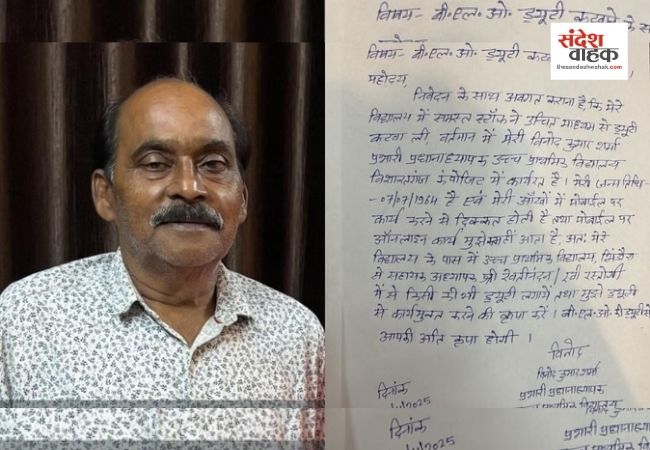 विषय- बी.एल.ओ. ड्यूटी कटवाने के
संदेश
वाहक
thesandeshwahak.com
विषय- बी.एल.ओ. ड्यूटी
महोदय,
निवेदन के साथ अवगत कराना है, कि मेरे
विद्यालय में समस्त स्टॉफ ने उचित माध्यम से ड्यूटी
कटवा ली, वर्तमान में मेरी विनोद कुमार शर्मा
प्रभारी प्रधानाध्यापक उच्च प्राथमिक विद्यालय
कंपोजिट में कार्यरत है। मेरी जन्म तिथि-
-07/07/1964 है एवं मेरी आँखों में मोबाईल पर
कार्य करने से दिक्कत होती है तथा मोबाईल पर
ऑनलाइन कार्य मुझे नहीं आता है, अतः मेरे
विद्यालय के पास में उच्च प्राथमिक विद्यालय,
से सहायक अध्यापक श्री
में से किसी की भी ड्यूटी लगाने तथा मुझे ड्यूटी
से कार्यमुक्त करने की कृपा करें। बी.एल.ओ. की ड्यूटी से
आपकी अति कृपा होगी।
विनोद
विनोद कुमार शर्मा
दिनांक
प्रभारी प्रधानाध्यापक
/2025
दिनांक
प्रभारी प्रधानाध्यापक
/2025